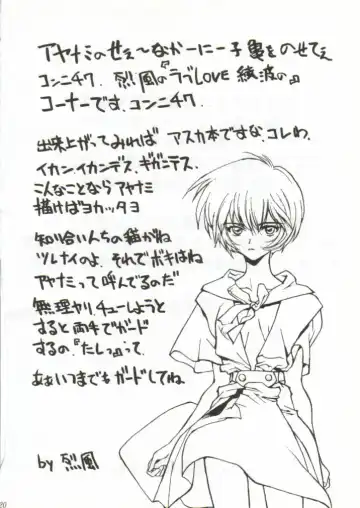 アヤナミのせぇ～なかーにー子亀をのせてぇ
コンニチワ 烈風の『ラブLOVE 綾波の』
コーナーです、コンニチワ
出来上がってみれば アスカ本ですな、コレわ
イカン、イカンデス、ギガンテス、
こんなことなら アヤナミ
描けばヨカッタヨ
知り合いんちの猫がね
ツレナイのよ、それでボキはね
アヤナミって呼んでるのだ
無理ヤリ、チューしようと
すると 両手でガード
するの、『たしっ』って
あぁ いつまでも ガードしてね
by 烈風
20